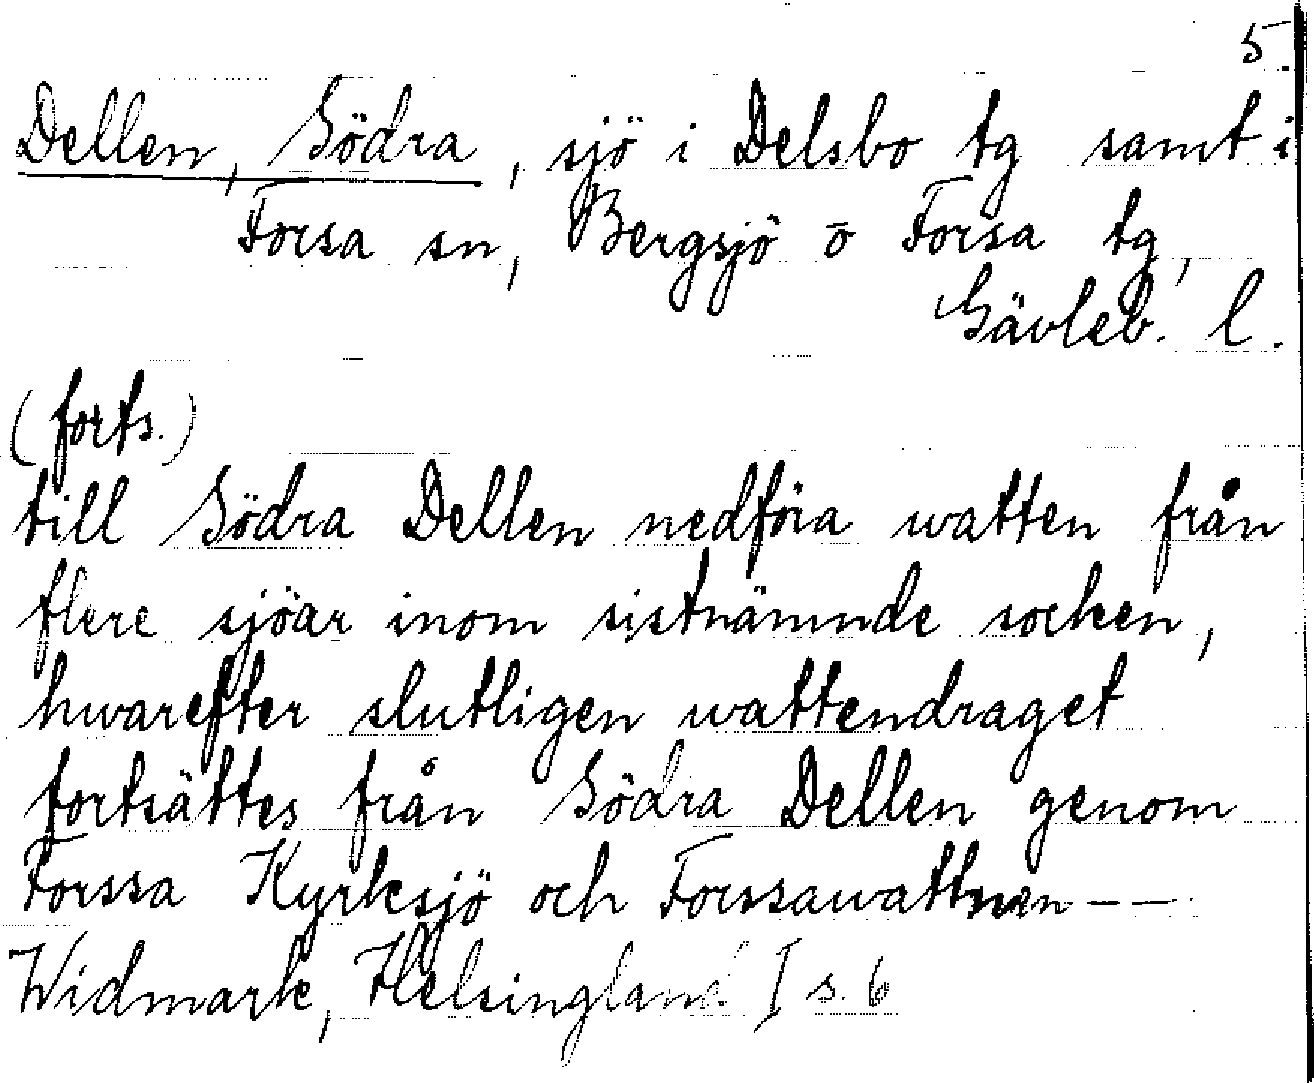 5.
Dellen, Södra, sjö i Delsbo tg samt i
Forsa sn, Bergsjö o Forsa tg,
Gävleb. l.
(forts.)
till Södra Dellen nedföra watten från
flere sjöar inom sistnämnde socken,
hwarefter slutligen wattendraget
fortsättes från Södra Dellen genom
Forssa Kyrksjö och Forssawattnen - -
Widmark, Helsingland I s. 6